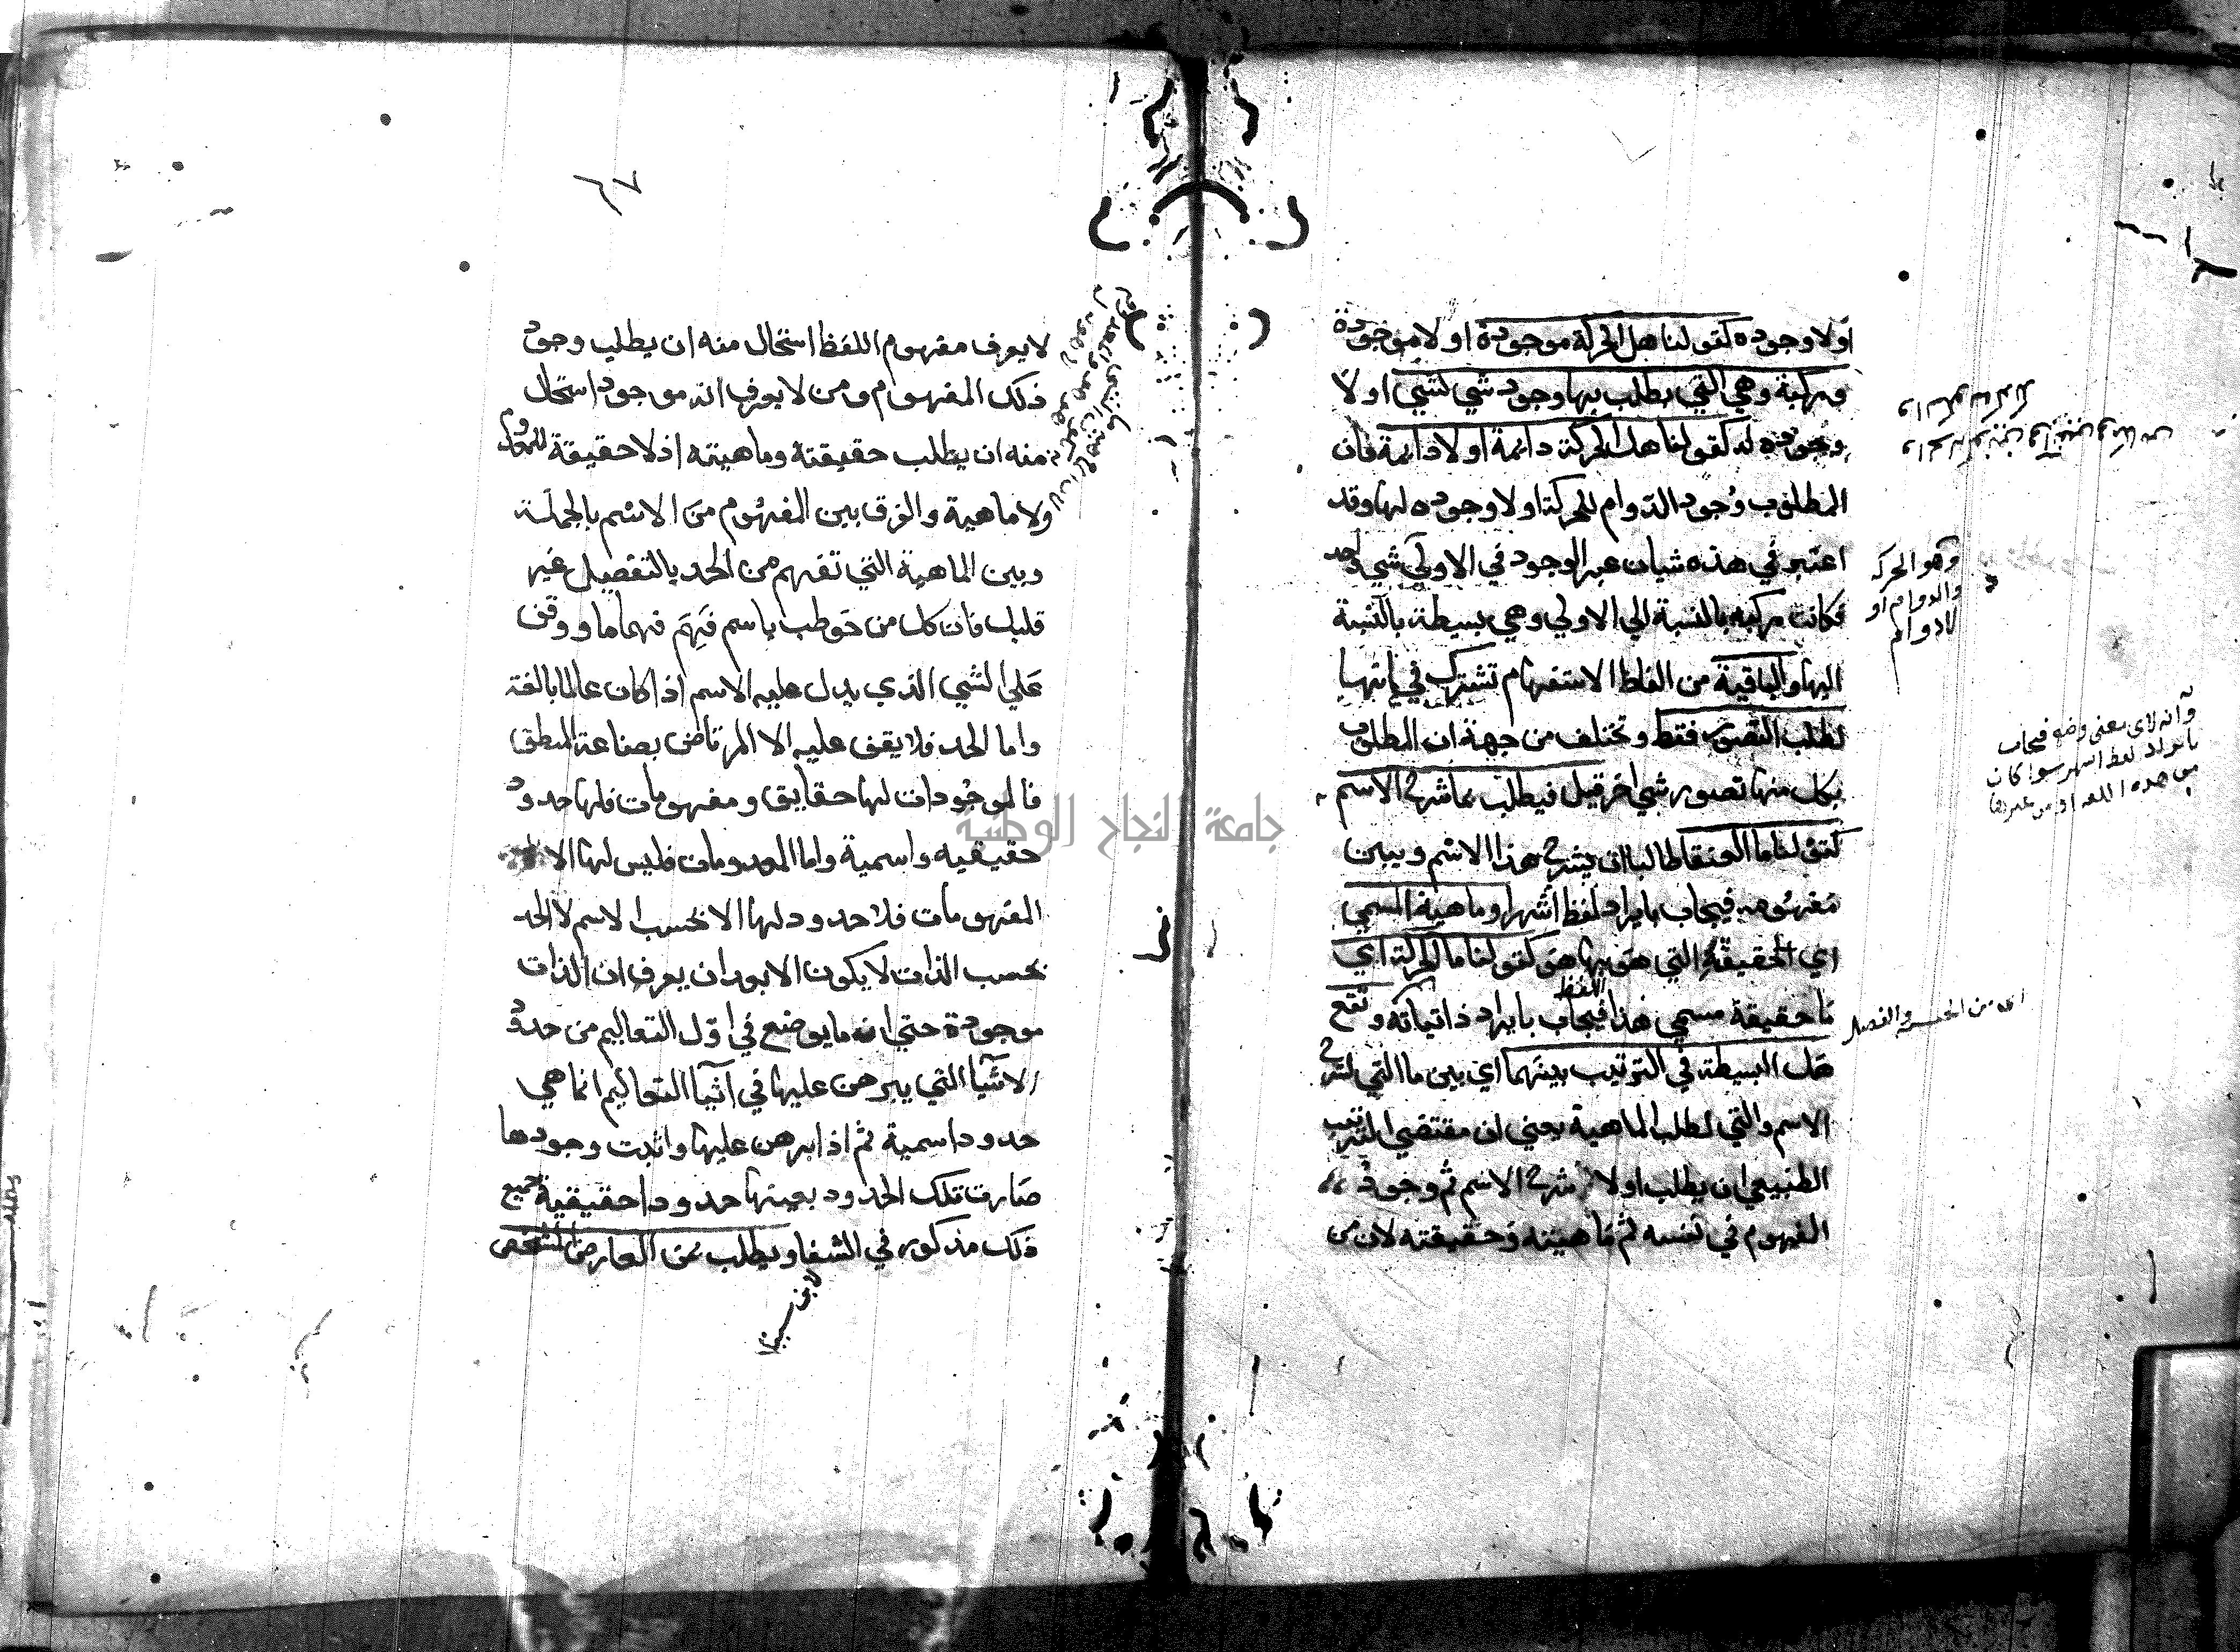 اولا وجوده كقولنا هل الحركة موجودة اولا موجودة
ومركبة وهي التي يطلب بها وجود شي لشي اولا
وجوده له كقولنا هل الحركة دائمة اولا دائمة فان
المطلوب وجود الدوام للحركة اولا وجوده لها وقد
اعتبر في هذه شيان غير الوجود في الاولي شي واحد
فكانت مركبه بالنسبة الي الاولي وهي بسيطة بالنسبة
اليها والباقية من الفاظ الاستفهام تشترك في انها
لطلب التصور فقط وتختلف من جهة ان المطلوب
بكل منها تصور شي اخر قيل فيطلب بما شرح الاسم
كقولنا ما العنقا طالبا ان يشرح هذا الاسم ويبين
مفهومه فيجاب بايراد لفظ اشهر او ماهية المسمي
اي الحقيقة التي هو بها هو كقولنا ما الحركة اي
ما حقيقة مسمي هذا اللفظ فيجاب بايراد ذاتياته وتقع
هل البسيطة في الترتيب بينهما اي بين ما التي لشرح
الاسم والتي لطلب الماهية يعني ان مقتضي الترتيب
الطبيعي ان يطلب اولا شرح الاسم ثم وجود
المفهوم في نفسه ثم ماهيته وحقيقته لان من
وهو الحركه
والدوام او
لا دوام
وانه لاي معنى وضع فيجاب
بايراد لفظ اشهر سوا كان
من هذه اللغه او من غيرها
اي من الجنس والفصل
٦٧
لا يعرف مفهوم اللفظ استحال منه ان يطلب وجود
ذلك المفهوم ومن لا يعرف انه موجود استحال
منه ان يطلب حقيقته وماهيته اذ لا حقيقة للمعدوم
ولا ماهية والفرق بين المفهوم من الاسم بالجملة
وبين الماهية التي تفهم من الحد بالتفصيل غير
قليل فان كل من خوطب باسم فهم فهما ما ووقف
علي الشي الذي يدل عليه الاسم اذا كان عالما بالغة
واما الحد فلا يقف عليه الا المرتاض بصناعة المنطق
فالموجودات لها حقايق ومفهومات فلها حدود
حقيقيه واسمية واما المعدومات فليس لها الا
المفهومات فلا حدود لها الا بحسب الاسم لا الحد
بحسب الذات لا يكون الا بعد ان يعرف ان الذات
موجودة حتي ان ما يوضع في اول التعاليم من حدود
الاشيا التي يبرهن عليها في اثنا التعاليم انما هي
حدود اسمية ثم اذا برهن عليها واثبت وجودها
صارت تلك الحدود بعينها حدودا حقيقية جميع
ذلك مذكور في الشفا ويطلب بمن العارض المشخص
لابن سينا
جامعة النجاح الوطنية